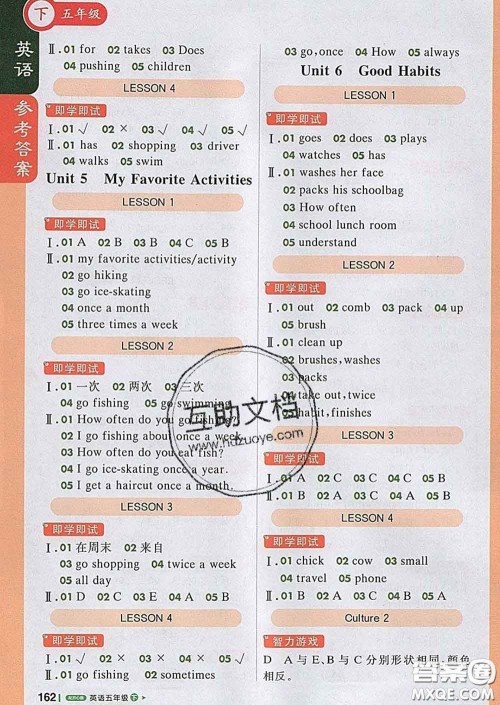 下 五年级
英语
参考答案
Ⅱ.01 for 02 takes 03 Does
04 pushing 05 children
LESSON 4
即学即试
Ⅰ.01 √ 02 × 03 √ 04 √ 05 √
Ⅱ.01 has 02 shopping 03 driver
04 walks 05 swim
Unit 5 My Favorite Activities
LESSON 1
即学即试
Ⅰ.01 A 02 B 03 B 04 C 05 B
Ⅱ.01 my favorite activities/activity
02 go hiking
03 go ice-skating
04 once a month
05 three times a week
LESSON 2
即学即试
Ⅰ.01 一次 02 两次 03 三次
04 go fishing 05 go swimming
Ⅱ.01 How often do you go fishing?
02 I go fishing about once a week.
03 How often do you eat fish?
04 I go ice-skating once a year.
05 I get a haircut once a month.
LESSON 3
即学即试
Ⅰ.01 在周末 02 来自
03 go shopping 04 twice a week
05 all day
Ⅱ.01 D 02 C 03 E 04 A 05 B
LESSON 4
即学即试
Ⅰ.01 √ 02 × 03 × 04 √ 05 √
Ⅱ.01 go fishing 02 sometimes
162 英语五年级 下
03 go, once 04 How 05 always
Unit 6 Good Habits
LESSON 1
即学即试
Ⅰ.01 goes 02 does 03 plays
04 watches 05 has
Ⅱ.01 washes her face
02 packs his schoolbag
03 How often
04 school lunch room
05 understand
LESSON 2
即学即试
Ⅰ.01 out 02 comb 03 pack 04 up
05 brush
Ⅱ.01 clean up
02 brushes, washes
03 packs
04 take out, twice
05 habit, finishes
LESSON 3
即学即试
Ⅰ.01 A 02 C 03 C 04 A 05 C
Ⅱ.01 B 02 A 03 C 04 A 05 C
LESSON 4
即学即试
Ⅰ.01 chick 02 cow 03 small
04 travel 05 phone
Ⅱ.01 C 02 A 03 B 04 C 05 B
Culture 2
智力游戏
D A与E、B与C分别形状相同、颜色
相反。
互助文档
www.hdzuoye.com
答案圈
MXQE.COM